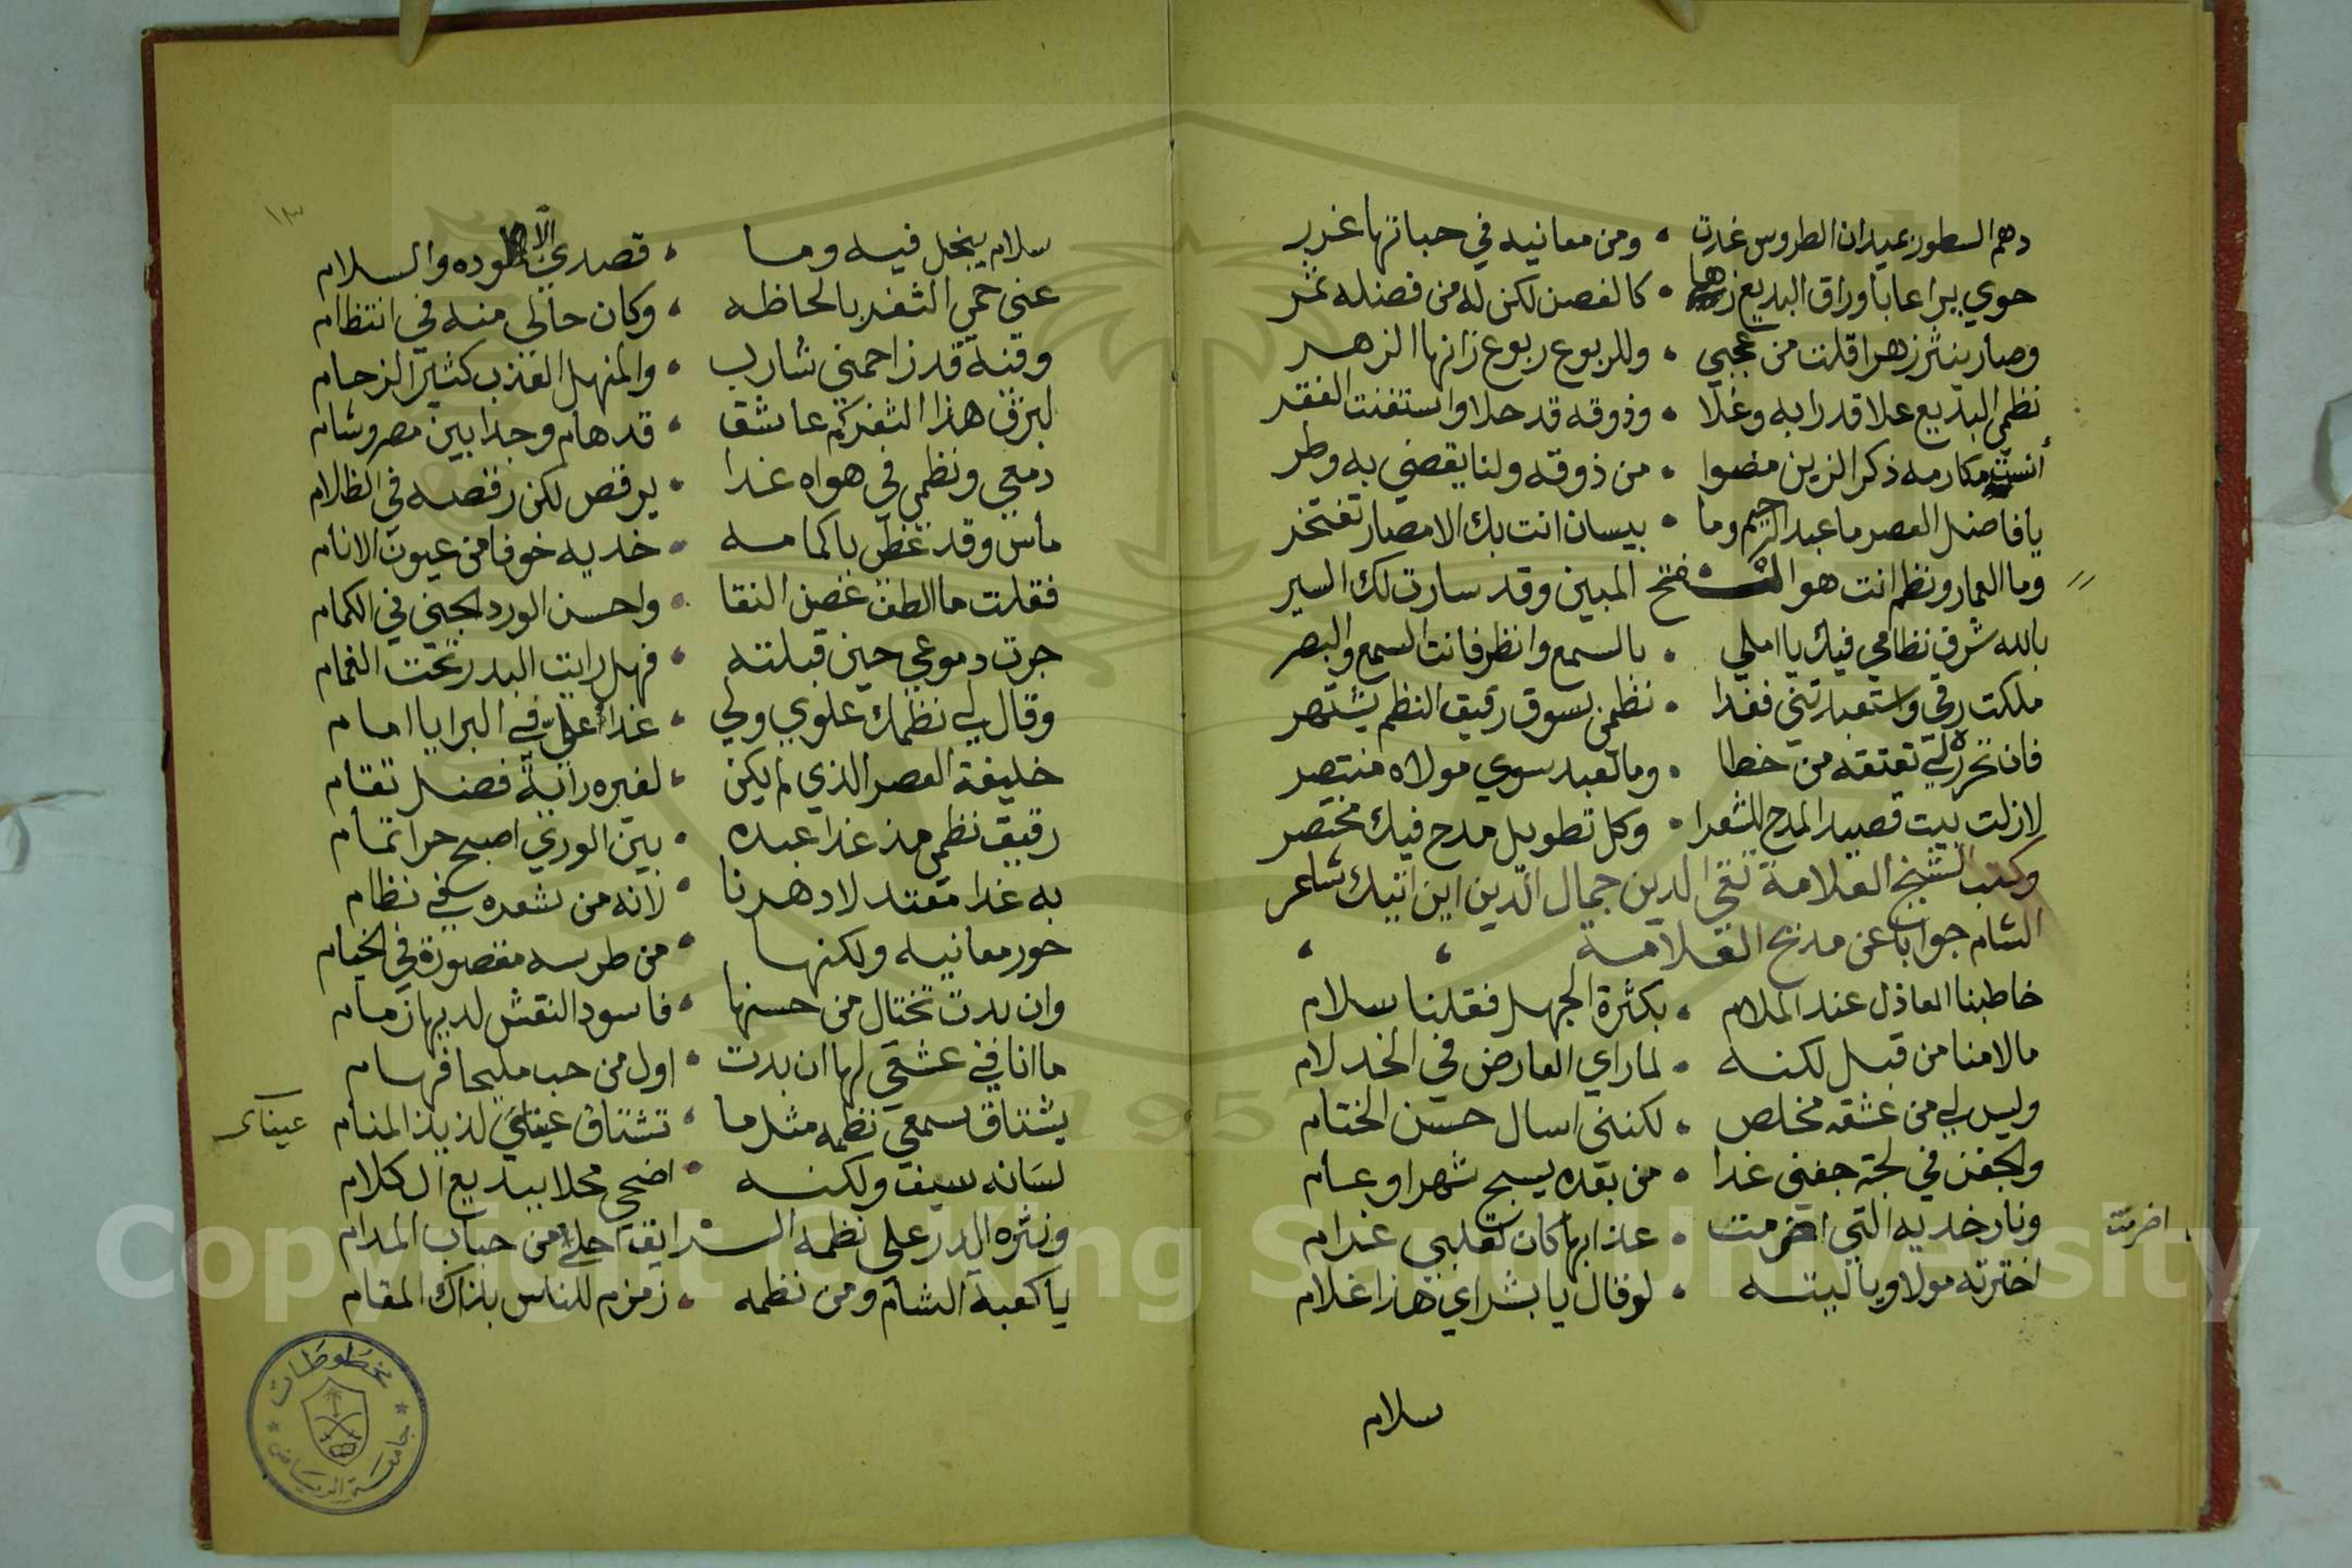 دهم السطور بميدان الطروس غدت • ومن معانيه في حباتها غرر
حوي يراعا باوراق البديع زها • كالغصن لكن له من فضله ثمر
وصار ينثر زهرا قلت من عجبي • وللربوع ربوع زانها الزهر
نظمي البديع علا قدرا به وغلا • وذوقه قد حلا واستغنت الفقر
أنست مكارمه ذكر الزين مضوا • من ذوقه ولنا يقضي به وطر
يا فاضل العصر ما عبد الرحيم وما • بيسان انت بك الامصار تفتخر
وما العماد ونظم انت هو الفتح المبين وقد سارت لك السير
بالله شرق نظامي فيك يا املي • بالسمع وانظر فانت السمع والبصر
ملكت رقي واستعبدتني فغدا • نظمي بسوق رقيق النظم يشتهر
فان تحرره لي تعتقه من خطا • وما لعبد سوي مولاه منتصر
لازلت بيت قصيد المدح للشعرا • وكل تطويل مدح فيك مختصر
وكتب الشيخ العلامة تقي الدين جمال الدين ابن اتيك شاعر
الشام جوابا عن مديح العلامة
خاطبنا العاذل عند الملام • بكثرة الجهل فقلنا سلام
مالامنا من قبل لكنه • لما راي العارض في الخد لام
وليس لي من عشقه مخلص • لكنني اسال حسن الختام
والجفن في لجة جفني غدا • من بعده يسبح شهرا وعام
ونار خديه التي اضرمت • عذابها كان لقلبي غرام
اضرمت
اخترته مولا ويا ليته • لو قال يا بشراي هذا غلام
سلام
١٣
سلام يبخل فيه وما • قصدي الا وده والسلام
عني حمي الثغر بالحاظه • وكان حالي منه في انتظام
وقنه قد زاحمني شارب • والمنهل العذب كثير الزحام
لبرق هذا الثغر كم عاشق • قد هام وجدا بين مصر وشام
دمعي ونظمي في هواه غدا • يرقص لكن رقصه في الظلام
ماس وقد غطي باكمامه • خديه خوفا من عيون الانام
فقلت ما الطف غصن النقا • واحسن الورد الجني في الكمام
جرت دموعي حين قبلته • فهل رايت البدر تحت الغمام
وقال لي نظمك علوي ولي • غدا علي في البرايا امام
خليفة العصر الذي لم يكن • لغيره راية فضل تقام
رقيق نظمي مذ غدا عبده • بين الوري اصبح حرا تمام
به غدا معتدلا دهرنا • لانه من شعره في نظام
حور معانيه ولكنها • من طرسه مقصورة في الخيام
وان بدت تختال من حسنها • فاسود النقش لديها زمام
ما انا في عشقي لها ان بدت • اول من حب مليحا فهام
يشتاق سمعي نظمه مثل ما • تشتاق عيناي لذيذ المنام
عيناي
لسانه سيف ولكنه • اضحي محلا ببديع الكلام
ونثره الدر علي نظمه الرايق احلى من حباب المدام
يا كعبة الشام ومن نظمه • زمزم للناس بذاك المقام
مخطوطات
جامعة الرياض
Copyright © King Saud University
1957